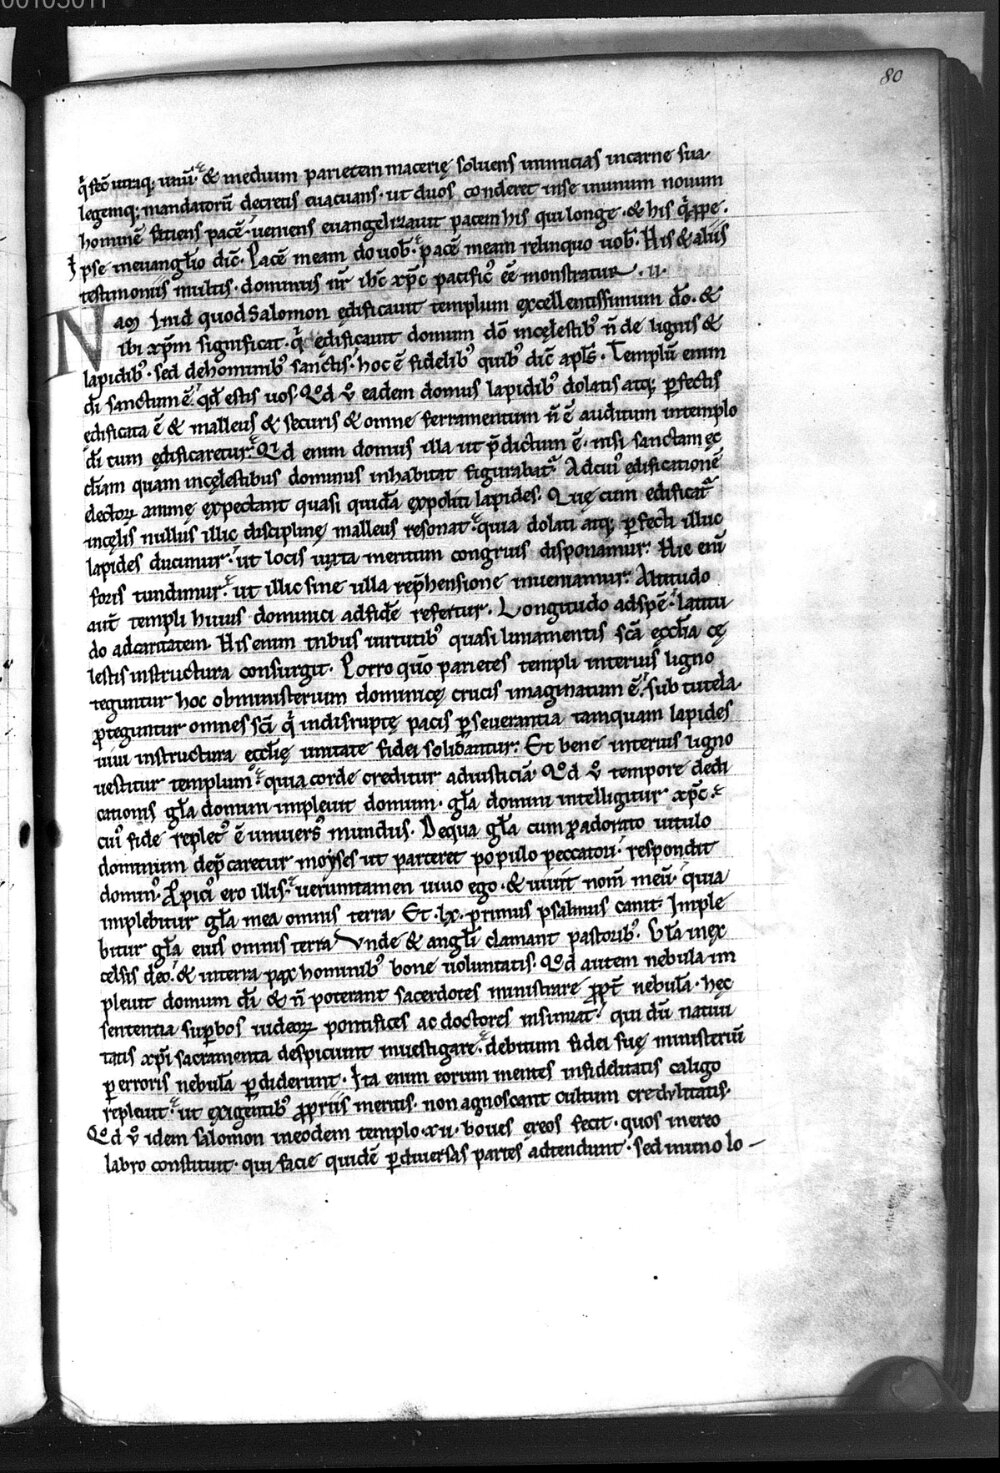 00103011
80
q̓ fec̄ utraq; unū. & medium parietem macerię soluens inimicias incarne sua.
legemq; mandatorū decretis euacuans. ut duos conderet inse inunum nouum
hominē fatiens pacē. ueniens euangelizauit pacem his qui longe. & his q̓ ꝓpe.
Ipse ineuangl̄io dic̄. Pacē meam do uob̄. pacē meam relinquo uob̄. His & aliis
testimoniis multis. dominus nr̄ ih̄c xp̄c pacific᾽ eē monstratur. II.
Nam Iud quod Salomon ędificauit templum excellentissimum dō. &
ibi xp̄m significat. q̓ ędificauit domum dō incęlestib᾽ n̄ de lignis &
lapidib᾽. sed dehominib᾽ sanctis. hoc ē fidelib᾽ quib᾽ dic̄ apl̄s. Templū enim
dī sanctum ē. qd̄ estis uos. Qd̄ ů eadem domus lapidib᾽ dolatis atq; ꝑfectis
ędificata ē & malleus & securis & omne ferramentum n̄ ē auditum intemplo
dī cum ędificaretur. Qd̄ enim domus illa ut p̄dictum ē. nisi sanctam ęc
cl̄iam quam incęlestibus dominus inhabitat figurabat᷑. Adcui᾽ ędificationē
electoꝝ animę expectant quasi quidā expoliti lapides. Quę cum edificat᷑
incęlis nullus illic disciplinę malleus resonat. quia dolati atq; ꝑfecti illuc
lapides ducimur. ut locis iuxta meritum congruis disponamur. Hic enī
foris tundimur. ut illic sine ulla rep̄hensione inueniamur. Altitudo
aut̄ templi huius dominici adfidē refertur. Longitudo adspē. latitu
do adcaritatem. His enim tribus uirtutib᾽ quasi liniamentis sc̄a ęccl̄ia cę
lestis instructura consurgit. Porro quō parietes templi interius ligno
teguntur hoc obministerium dominicę crucis imaginatum ē. sub tutela
ꝓteguntur omnes sc̄i q̓ indisruptę pacis ꝑseuerantia tamquam lapides
uiui instructura ęccl̄ię unitate fidei solidantur. Et bene interius ligno
uestitur templum. quia corde creditur adiusticiā. Qd̄ ů tempore dedi
cationis gl̄a domini impleuit domum. gl̄a domini intelligitur xp̄c.
cui᾽ fide replet᾽ ē uniuers᾽ mundus. Dequa gl̄a cum ꝓadorato uitulo
dominum dep̄caretur moyses ut parceret populo peccatori. respondit
domin᾽. Propici᾽ ero illis. ueruntamen uiuo ego. & uiuit nom̄ meū. quia
implebitur gl̄a mea omnis terra. Et. lx. primus psalmus canit. Imple
bitur gl̄a eius omnis terra Vnde & angl̄i clamant pastorib᾽. Gl̄a inex
celsis deo. & interra pax hominib᾽ bone uoluntatis. Qd̄ autem nebula im
pleuit domum dī & n̄ poterant sacerdotes ministrare ꝓpt̄ nebulā. hęc
sententia suꝑbos iudeoꝝ pontifices ac doctores insinuat. qui dū natiui
tatis xp̄i sacramenta despiciunt inuestigare. debitum fidei suę ministeriū
ꝑ erroris nebulā ꝑdiderunt. Ita enim eorum mentes infidelitatis caligo
repleuit. ut exigentib᾽ ꝓpriis meritis. non agnoscant cultum credulitatis.
Qd̄ ů idem salomon ineodem templo. xii. boues ęreos fecit. quos inereo
labro constituit. qui facie quidē ꝑdiuersas partes adtendunt. sed inuno lo